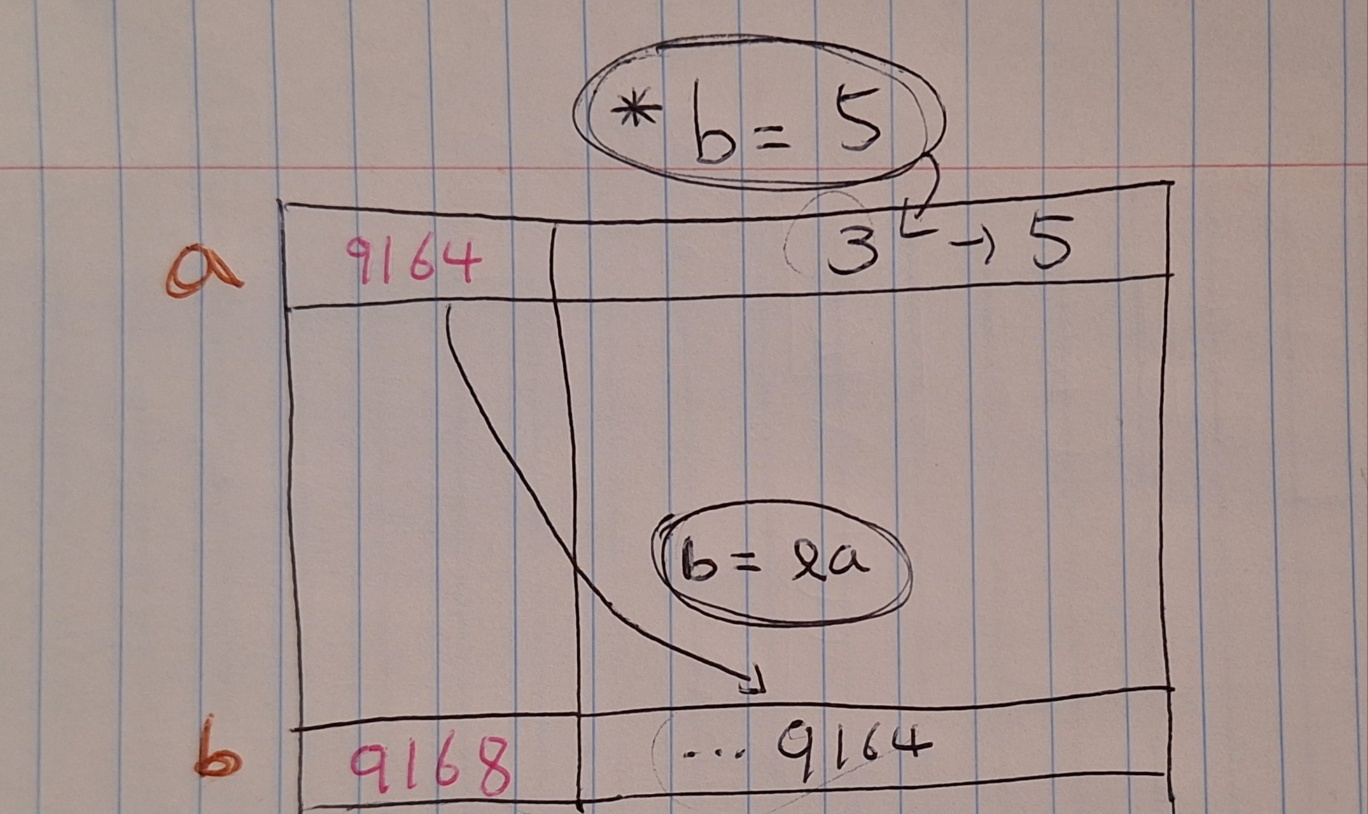 * b = 5
a 9164 3 → 5
b = &a
b 9168 ... 9164